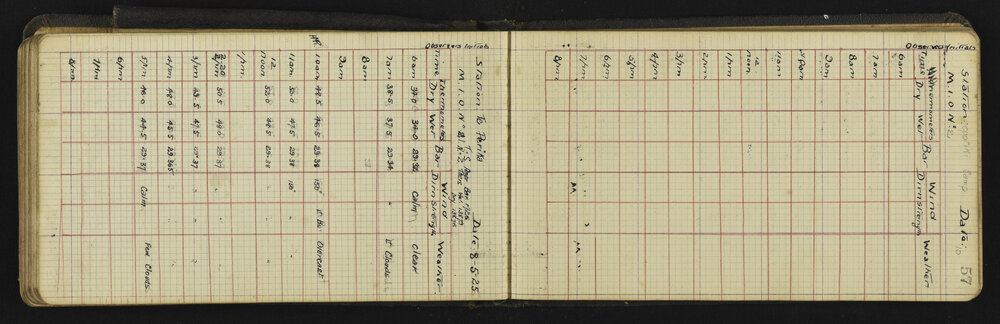 Station To Perita Date 8-5-25.
M.I.O. Nº 2.
Time Thermometers Bar Wind Weather.
Dry Wet Dirn Strength
Observers Initials
6am 34.0 34.0 29.32 Calm Clear
7am 38.5 37.5 29.34 " " Lt Clouds
8am
9am
10am 48.5 46.5 29.38 150° Lt Br. Overcast
11am 50.0 47.5 29.38 " "
12 noon 52.0 48.5 29.38 " "
1pm
2.30 pm 50.5 48.0 29.37 " "
3pm 49.5 47.5 29.37 " "
4pm 48.0 45.5 29.365 " "
5pm 46.0 44.5 29.37 Calm Few Clouds
6pm
7pm
8pm
57
Station Camp Date
M.I.O. Nº 2
Time Thermometers Bar Wind Weather
Dry Wet Dirn Strength
Observers Initials
6am
7am
8am
9am
10am
11am
12 noon
1pm
2pm
3pm
4pm
5pm
6pm
7pm
8pm